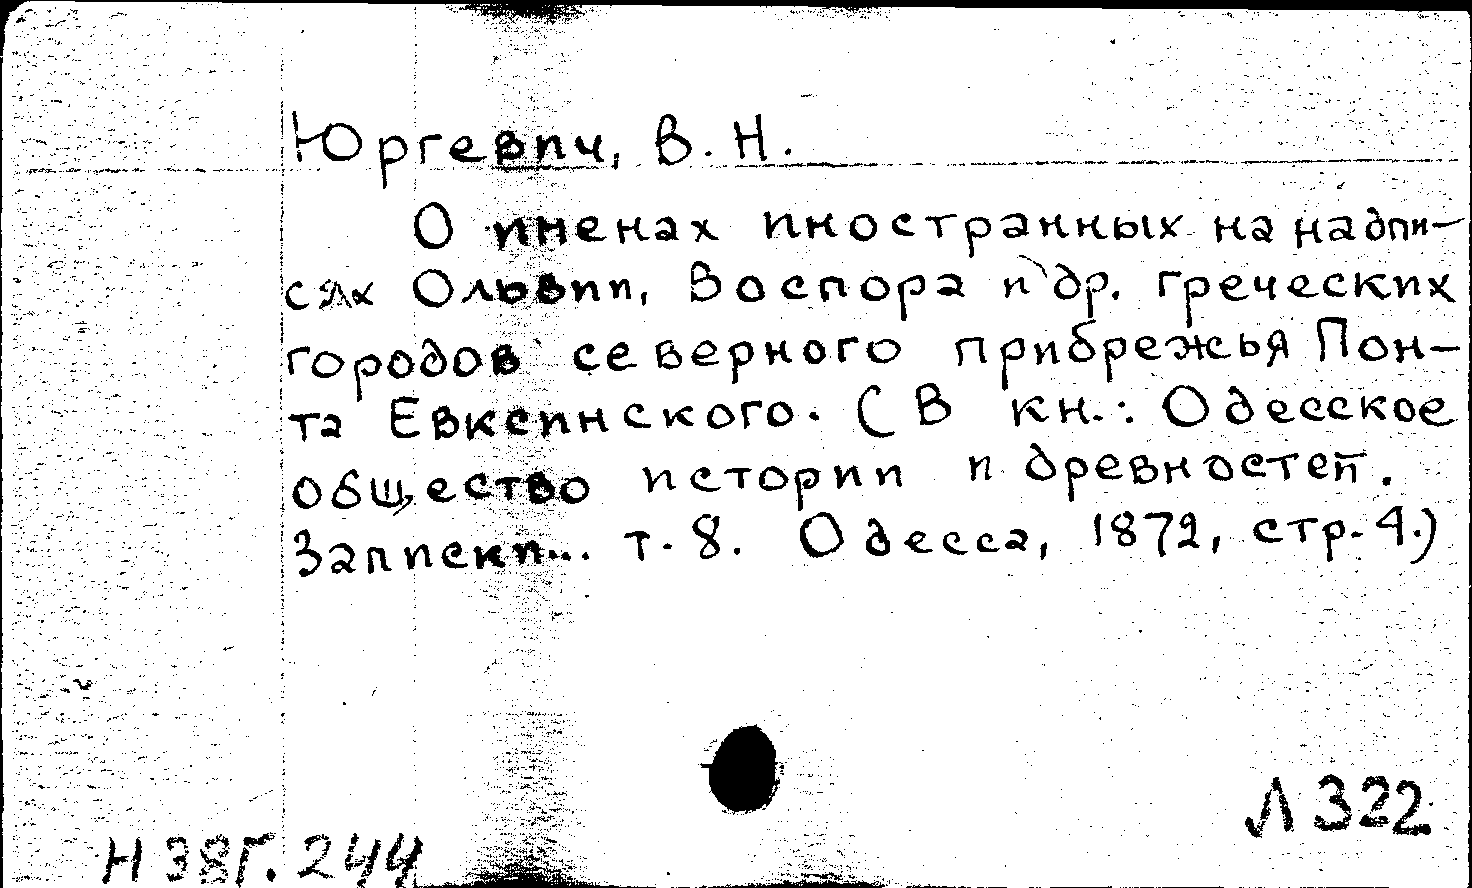 Юргевич, В. Н.
О именах иностранных на надпи-
сях Ольвии, Воспора и др. греческих
городов северного прибрежья Пон-
та Евксинского. (В кн.: Одесское
общество истории и древностей.
Записки... т. 8. Одесса, 1872, стр. 4.)
Л 322
Н 38г. 244